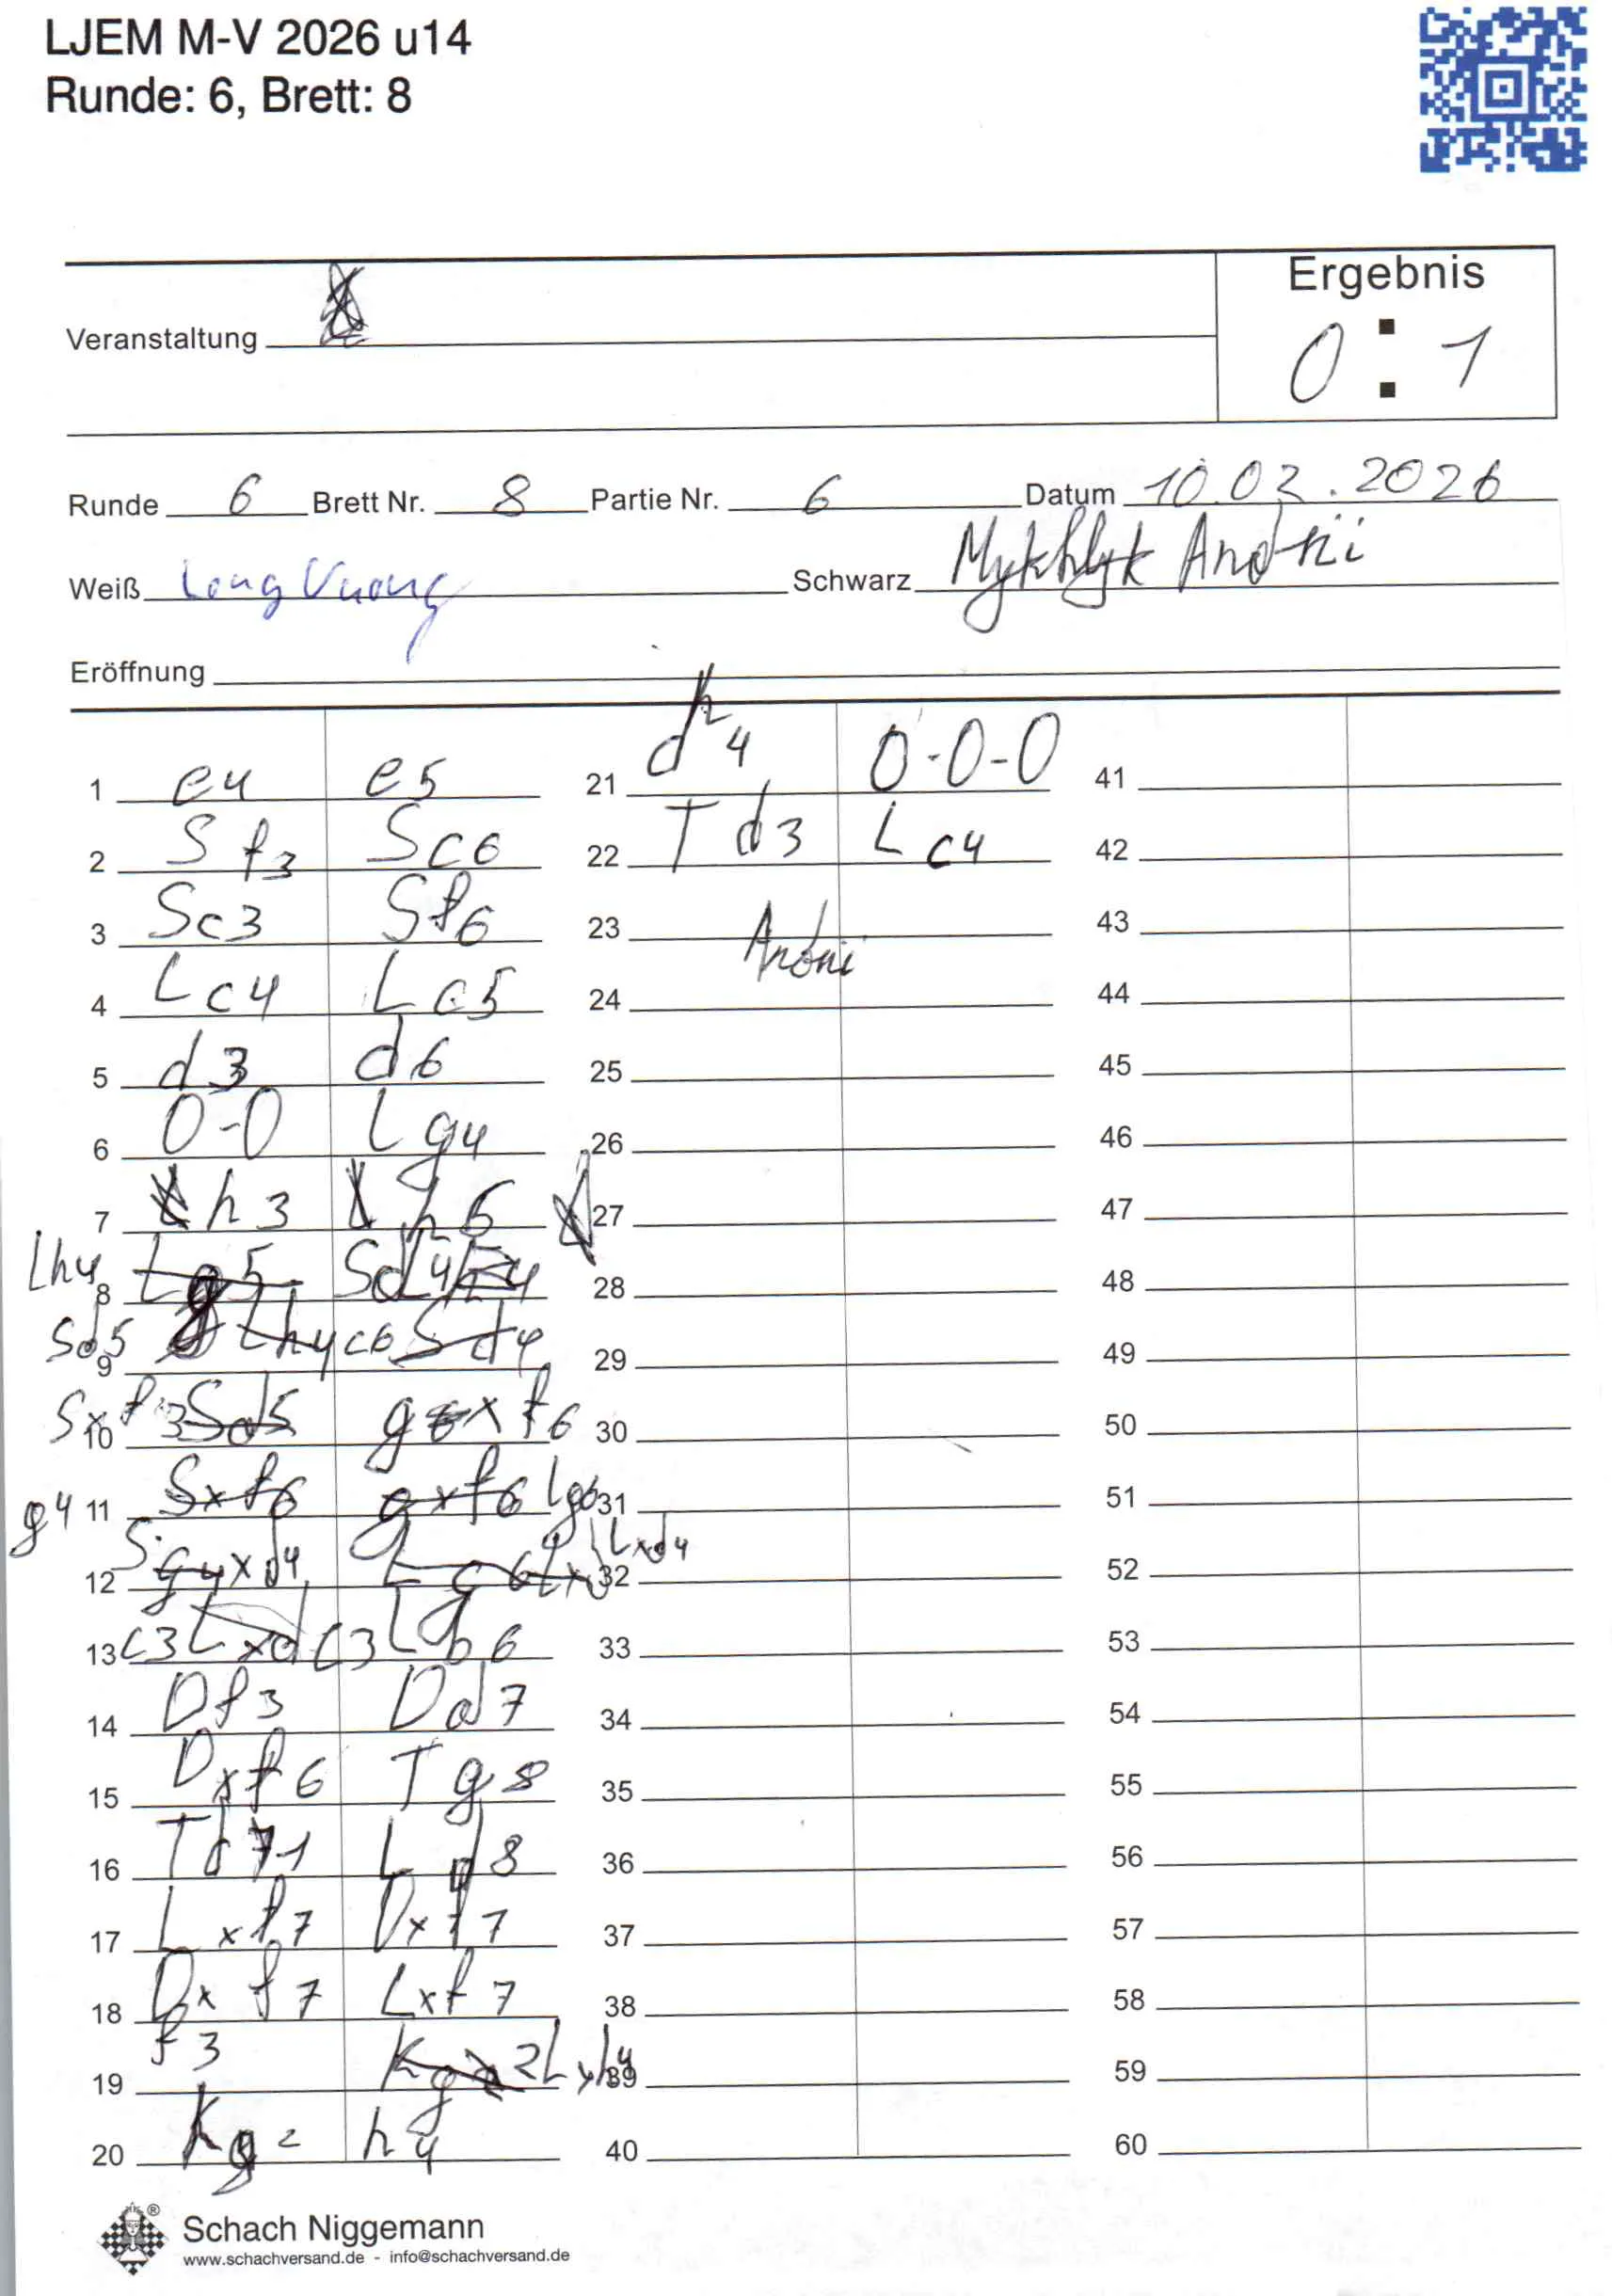 LJEM M-V 2026 u14
Runde: 6, Brett: 8
Ergebnis
Veranstaltung
0 : 1
Runde 6 Brett Nr. 8 Partie Nr. 6 Datum 10.03.2026
Weiß Long Vuong Schwarz Mykhlyk Andrii
Eröffnung
1 e4 e5
2 Sf3 Sc6
3 Sc3 Sf6
4 Lc4 Lc5
5 d3 d6
6 0-0 Lg4
7 h3 h6
8 Lh4 Lg5 Sd4
9 Sd5 Lh4 c6 Sd4
10 Sxf3 Sd5 gxf6
11 g4 Sxf6 gxf6 Lg6
12 Sxd4 Lxd4
13 c3 Lb6
14 Df3 Dd7
15 Dxf6 Tg8
16 Td1 Ld8
17 Lxf7 Dxf7
18 Dxf7 Lxf7
19 f3 Kg2 Lxh4
20 Kg2 h4
21 d4 0-0-0
22 Td3 Lc4
23
24
25
26
27
28
29
30
31
32
33
34
35
36
37
38
39
40
41
42
43
44
45
46
47
48
49
50
51
52
53
54
55
56
57
58
59
60
Schach Niggemann
www.schachversand.de - info@schachversand.de